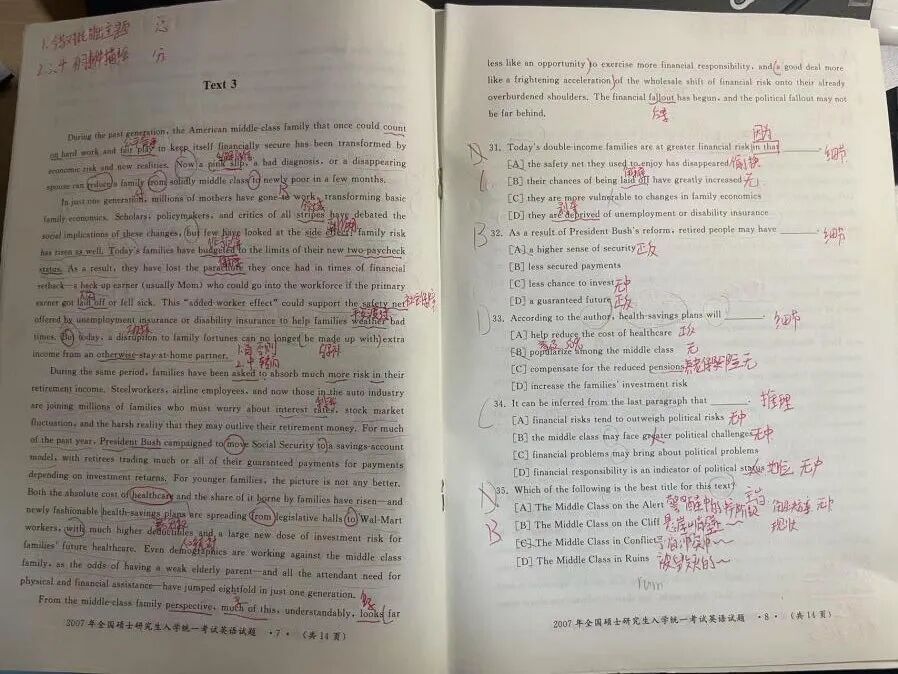 1.
2.
Text 3
During the past generation, the American middle-class family that once could count
on hard work and fair play to keep itself financially secure has been transformed by
economic risk and new realities. Now a pink slip, a bad diagnosis, or a disappearing
spouse can reduce a family from solidly middle class to newly poor in a few months.
In just one generation, millions of mothers have gone to work, transforming basic
family economics. Scholars, policymakers, and critics of all stripes have debated the
social implications of these changes, but few have looked at the side effect: family risk
has risen as well. Today's families have budgeted to the limits of their new two-paycheck
status. As a result, they have lost the parachute they once had in times of financial
setback—a back-up earner (usually Mom) who could go into the workforce if the primary
earner got laid off or fell sick. This "added-worker effect" could support the safety net
offered by unemployment insurance or disability insurance to help families weather bad
times. But today, a disruption to family fortunes can no longer be made up with extra
income from an otherwise-stay-at-home partner.
During the same period, families have been asked to absorb much more risk in their
retirement income. Steelworkers, airline employees, and now those in the auto industry
are joining millions of families who must worry about interest rates, stock market
fluctuation, and the harsh reality that they may outlive their retirement money. For much
of the past year, President Bush campaigned to move Social Security to a savings-account
model, with retirees trading much or all of their guaranteed payments for payments
depending on investment returns. For younger families, the picture is not any better.
Both the absolute cost of healthcare and the share of it borne by families have risen—and
newly fashionable health-savings plans are spreading from legislative halls to Wal-Mart
workers, with much higher deductibles and a large new dose of investment risk for
families' future healthcare. Even demographics are working against the middle class
family, as the odds of having a weak elderly parent—and all the attendant need for
physical and financial assistance—have jumped eightfold in just one generation.
From the middle-class family perspective, much of this, understandably, looks far
2007年全国硕士研究生入学统一考试英语试题 ·7· (共14页)
less like an opportunity to exercise more financial responsibility, and a good deal more
like a frightening acceleration of the wholesale shift of financial risk onto their already
overburdened shoulders. The financial fallout has begun, and the political fallout may not
be far behind.
后果
因为
31. Today's double-income families are at greater financial risk in that ______. 细节
[A] the safety net they used to enjoy has disappeared
[B] their chances of being laid off have greatly increased 无
[C] they are more vulnerable to changes in family economics
[D] they are deprived of unemployment or disability insurance
B 32. As a result of President Bush's reform, retired people may have ______. 细节
[A] a higher sense of security 正反
[B] less secured payments
[C] less chance to invest 无中
[D] a guaranteed future 正反
D 33. According to the author, health-savings plans will ______. 细节
[A] help reduce the cost of healthcare 正反
[B] popularize among the middle class 无
[C] compensate for the reduced pensions 无
[D] increase the families' investment risk
C 34. It can be inferred from the last paragraph that ______. 推理
[A] financial risks tend to outweigh political risks 无中
[B] the middle class may face greater political challenges 无中
[C] financial problems may bring about political problems
[D] financial responsibility is an indicator of political status 地位 无中
35. Which of the following is the best title for this text? 主旨
[A] The Middle Class on the Alert
B [B] The Middle Class on the Cliff
[C] The Middle Class in Conflict
[D] The Middle Class in Ruins
ruin
2007年全国硕士研究生入学统一考试英语试题 ·8· (共14页)